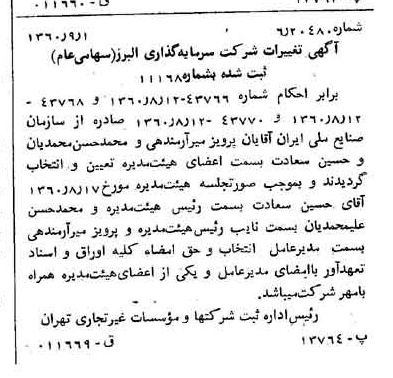 شماره ۶/۲۰۴۸۰ ۱۳۶۰/۹/۱
آگهی تغییرات شرکت سرمایه‌گذاری البرز(سهامی‌عام)
ثبت شده بشماره ۱۱۱۶۸
برابر احکام شماره ۴۳۷۶۶-۱۳۶۰/۸/۱۲ و ۴۳۷۶۸ -
۱۳۶۰/۸/۱۲ و ۴۳۷۷۰ -۱۳۶۰/۸/۱۲ صادره از سازمان
صنایع ملی ایران آقایان پرویز میرآرمندهی و محمدحسن‌محمدیان
و حسین سعادت بسمت اعضای هیئت‌مدیره تعیین و انتخاب
گردیدند و بموجب صورتجلسه هیئت‌مدیره مورخ ۱۳۶۰/۸/۱۷
آقای حسین سعادت بسمت رئیس هیئت‌مدیره و محمدحسن
علیمحمدیان بسمت نایب رئیس‌هیئت‌مدیره و پرویز میرآرمندهی
بسمت مدیرعامل انتخاب و حق امضاء کلیه اوراق و اسناد
تعهدآور باامضای مدیرعامل و یکی از اعضای‌هیئت‌مدیره همراه
بامهر شرکت‌میباشد.
رئیس‌اداره ثبت شرکتها و مؤسسات غیرتجاری تهران
پ- ۱۳۷۶۴ ق- ۰۱۱۶۶۹